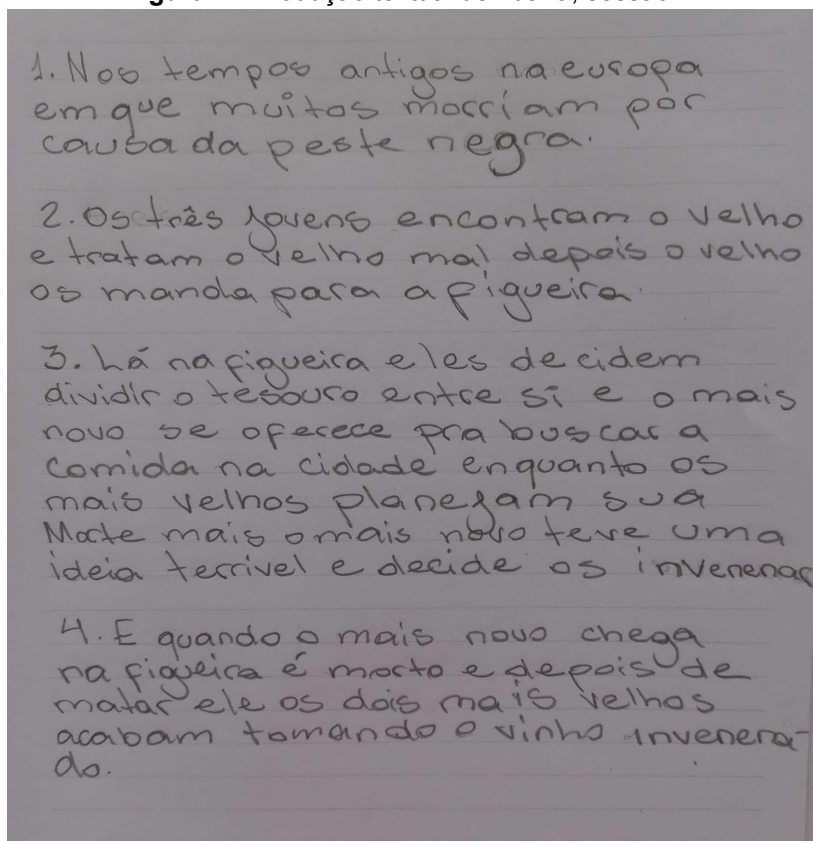 1. Nos tempos antigos na europa
em que muitos morriam por
causa da peste negra.
2. Os três jovens encontram o velho
e tratam o velho mal depois o velho
os manda para a figueira.
3. há na figueira eles decidem
dividir o tesouro entre si e o mais
novo se oferece pra buscar a
comida na cidade enquanto os
mais velhos planejam sua
Morte mais o mais novo teve uma
ideia terrivel e decide os invenenar
4. E quando o mais novo chega
na figueira é morto e depois de
matar ele os dois mais velhos
acabam tomando o vinho invenera-
do.